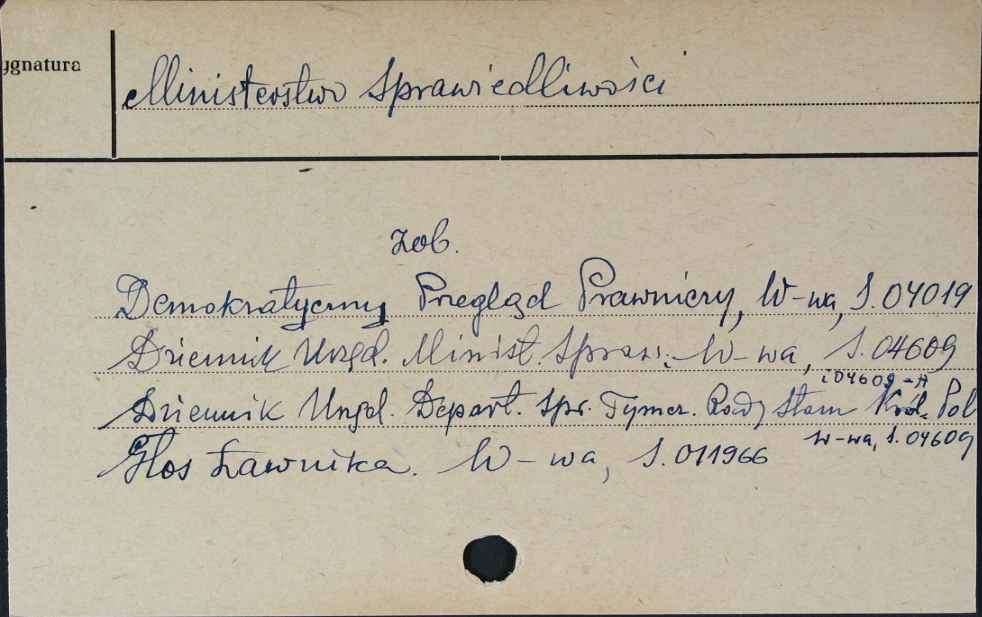 ygnatura
Ministerstwo Sprawiedliwości
zob.
Demokratyczny Przegląd Prawniczy, W-wa, S.04019
Dziennik Urzęd. Minist. Spraw. W-wa, S.04609
i 04609-A
Dziennik Urzęd. Depart. Spr. Tymcz. Rady Stanu Król. Pol
W-wa, S.04609
Głos Ławnika. W-wa, S.011966